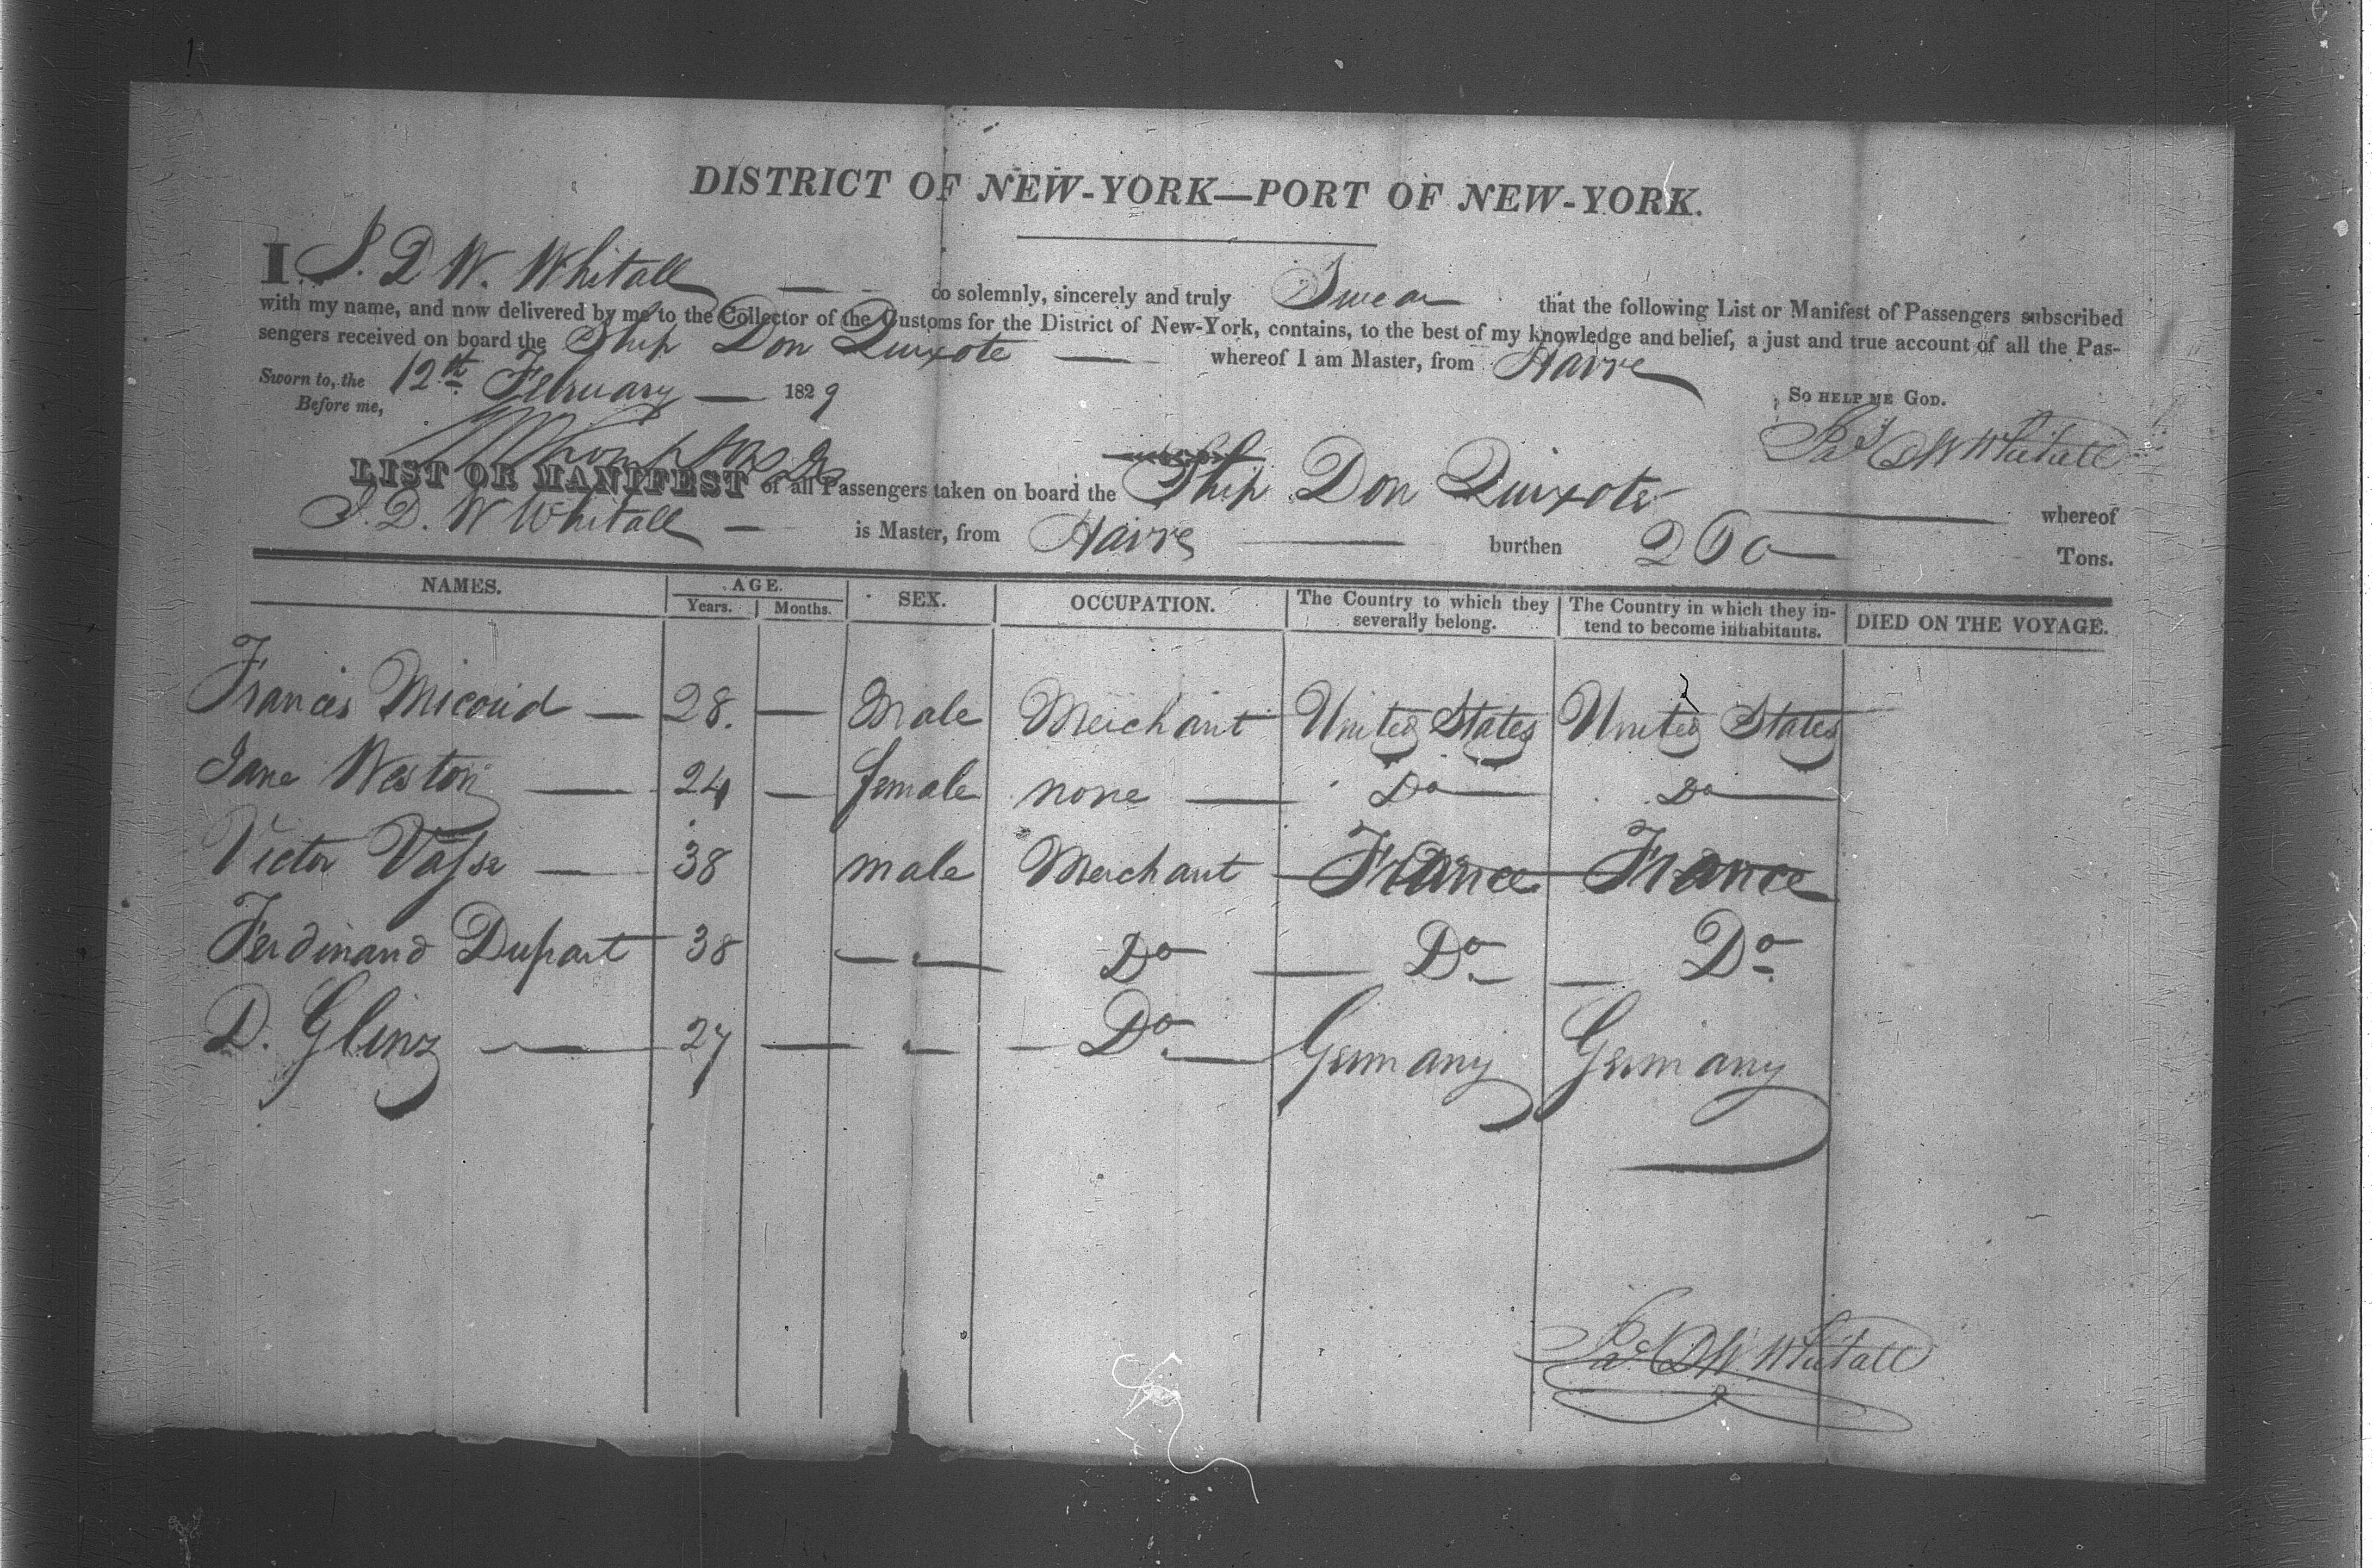 DISTRICT OF NEW-YORK—PORT OF NEW-YORK.
I. J. D W. Whitall — — do solemnly, sincerely and truly Swear that the following List or Manifest of Passengers subscribed
with my name, and now delivered by me to the Collector of the Customs for the District of New-York, contains, to the best of my knowledge and belief, a just and true account of all the Pas-
sengers received on board the Ship Don Quixote — whereof I am Master, from Havre
Sworn to, the 12th February — 1829
Before me,
SO HELP ME GOD.
Jas D W Whitall
Thompson
LIST OR MANIFEST of all Passengers taken on board the Ship Don Quixote — whereof
J. D. W Whitall — is Master, from Havre — burthen 260 — Tons.
NAMES. AGE. SEX. OCCUPATION. The Country to which they severally belong. The Country in which they in-tend to become inhabitants. DIED ON THE VOYAGE.
Years. Months.
Francis Micoud — 28. — Male Merchant United States United States
Jane Weston — 24 — female none — Do — Do —
Victor Vasse — 38 male Merchant — France — France
Ferdinand Dupart 38 — " — Do — Do — Do
D. Glinz — 27 — " — Do — Germany Germany
Jas. D W. Whitall